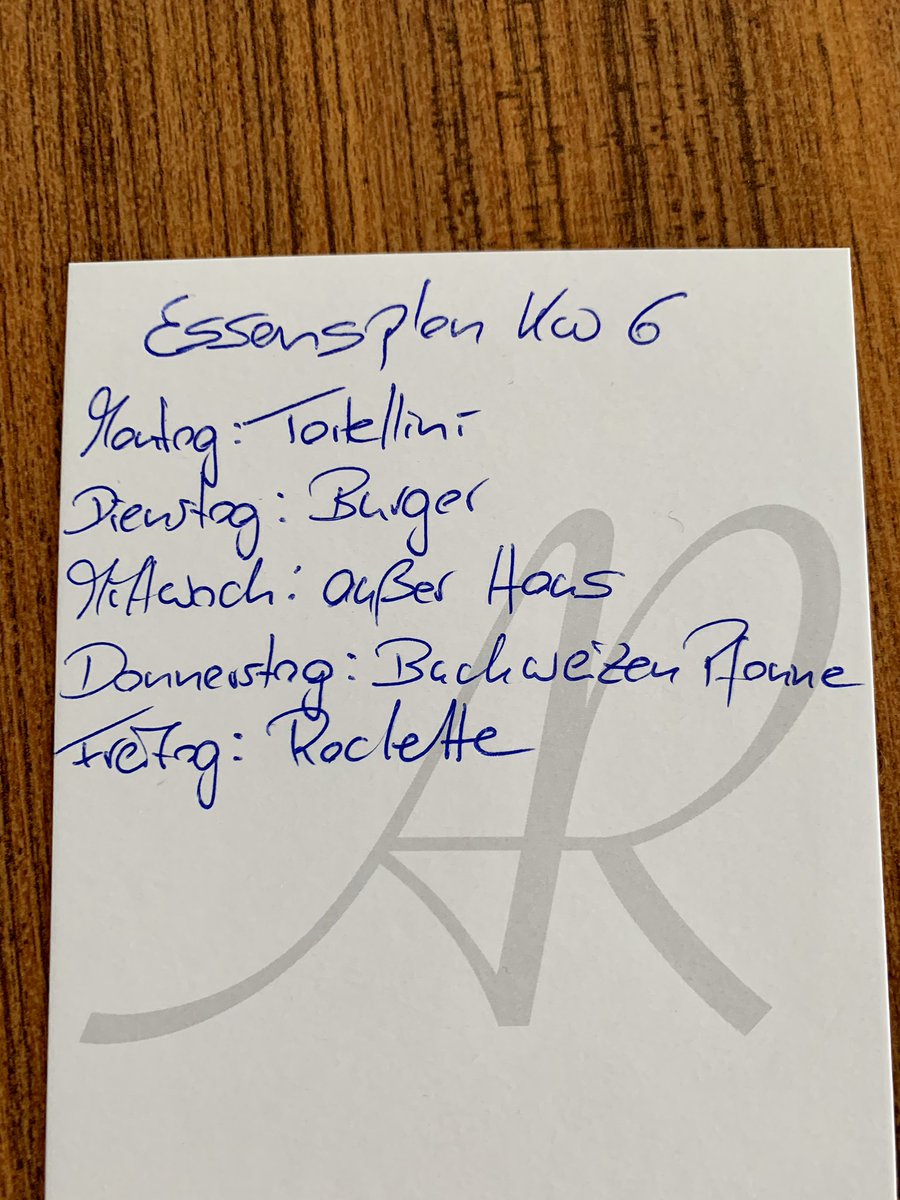 Essensplan KW 6
Montag: Tortellini
Dienstag: Burger
Mittwoch: außer Haus
Donnerstag: Buchweizen Pfanne
Freitag: Raclette
AR